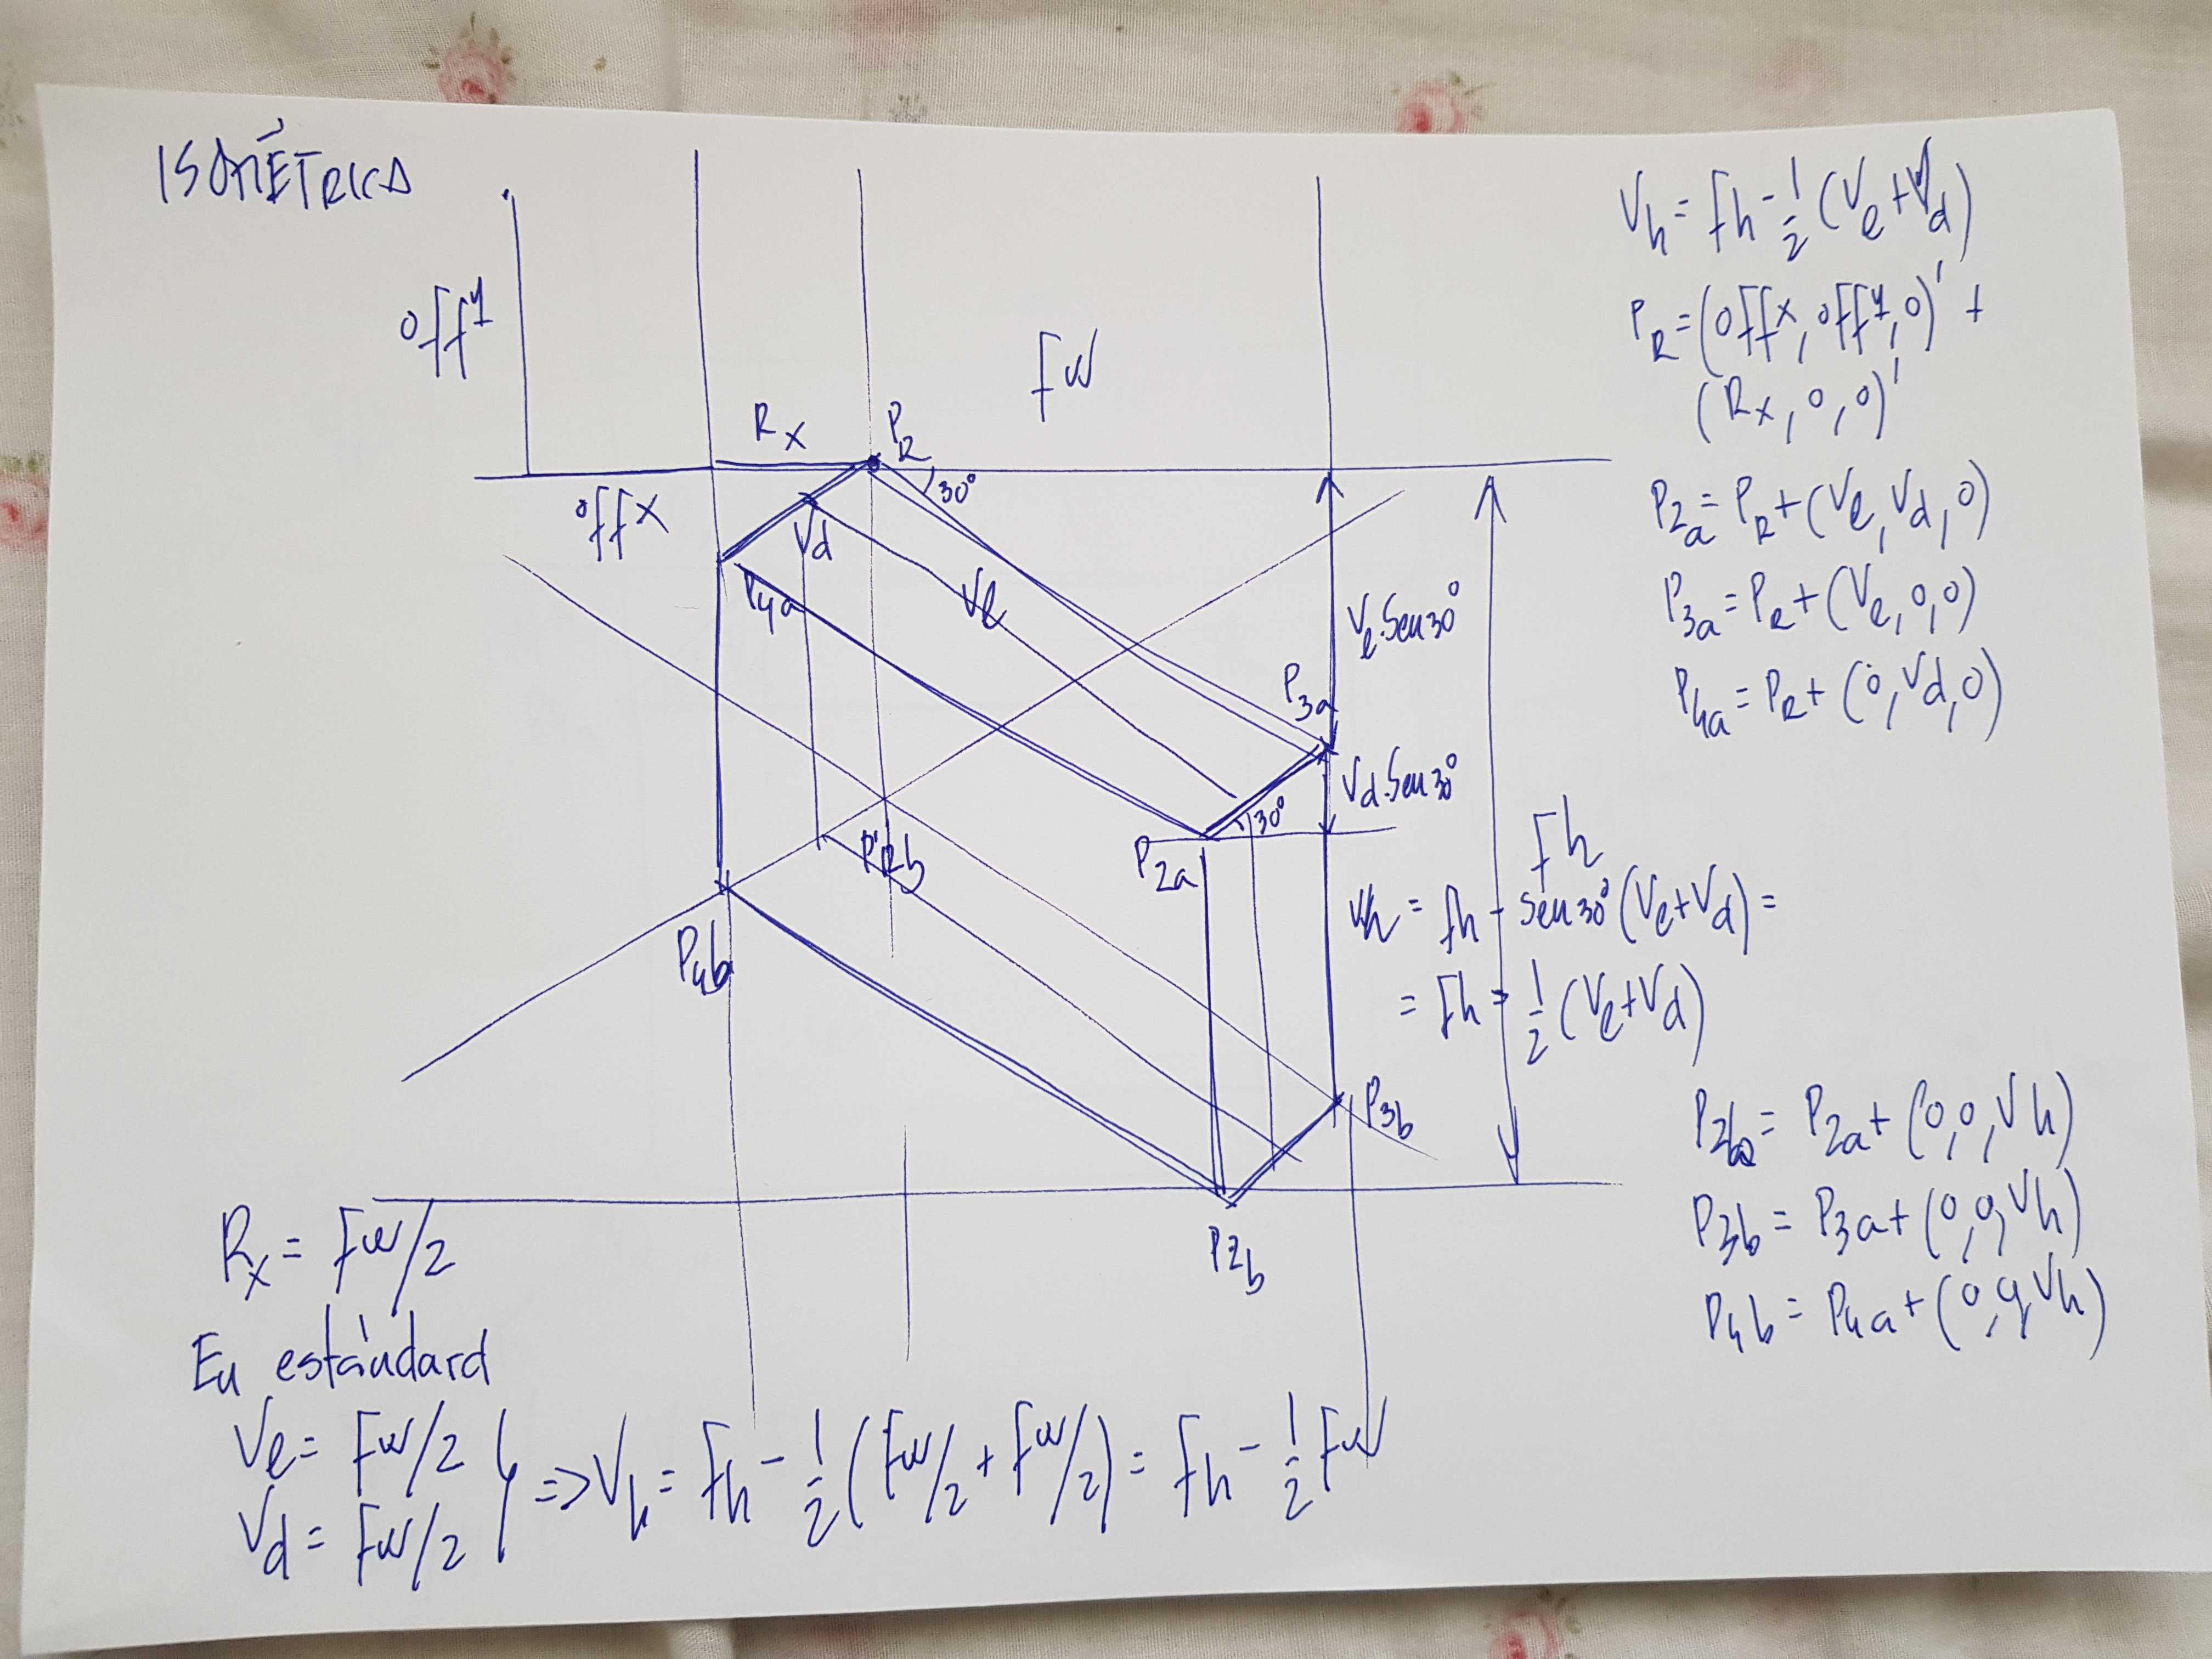 ISOMÉTRICA
offy
offx
Rx
PR
fw
30°
Vd
Ve
P4a
P3a
Ve.Sen30°
Vd.Sen30°
30°
P2a
PRb
P4b
fh
Vh = fh - Sen30°(Ve+Vd) =
= fh - 1/2 (Ve+Vd)
P3b
P2b
Vh = fh - 1/2 (Ve+Vd)
PR = (offx, offy, 0)' +
(Rx, 0, 0)'
P2a = PR + (Ve, Vd, 0)
P3a = PR + (Ve, 0, 0)
P4a = PR + (0, Vd, 0)
P2b = P2a + (0, 0, Vh)
P3b = P3a + (0, 0, Vh)
P4b = P4a + (0, 0, Vh)
Rx = fw/2
En estándard
Ve = fw/2
Vd = fw/2
} => Vh = fh - 1/2 (fw/2 + fw/2) = fh - 1/2 fw